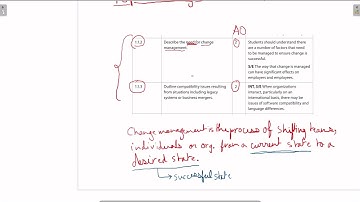 AO
1.1.2 Describe the need for change management. 1 Students should understand there are a number of factors that need to be managed to ensure change is successful.
S/E The way that change is managed can have significant effects on employers and employees.
1.1.3 Outline compatibility issues resulting from situations including legacy systems or business mergers. 2 INT, S/E When organizations interact, particularly on an international basis, there may be issues of software compatibility and language differences.
Change management is the process of shifting teams,
individuals or org. from a current state to a
desired state.
successful state